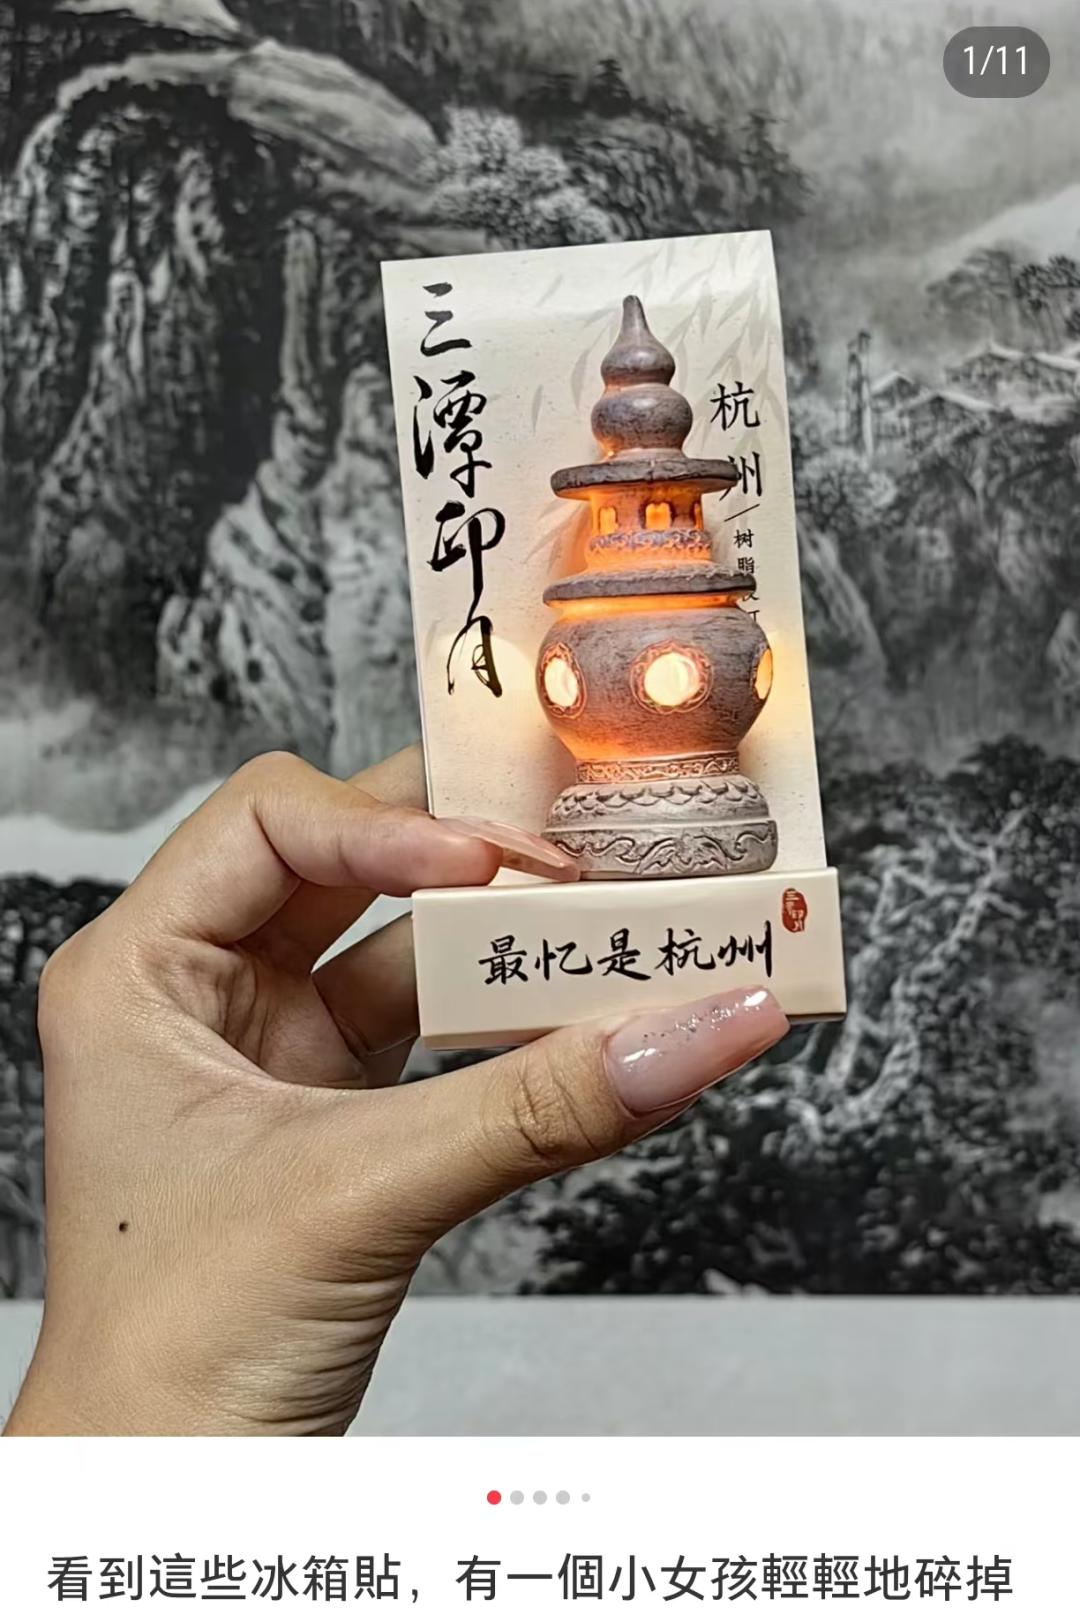 1/11
三潭印月
杭州
树脂
最忆是杭州
看到這些冰箱貼，有一個小女孩輕輕地碎掉